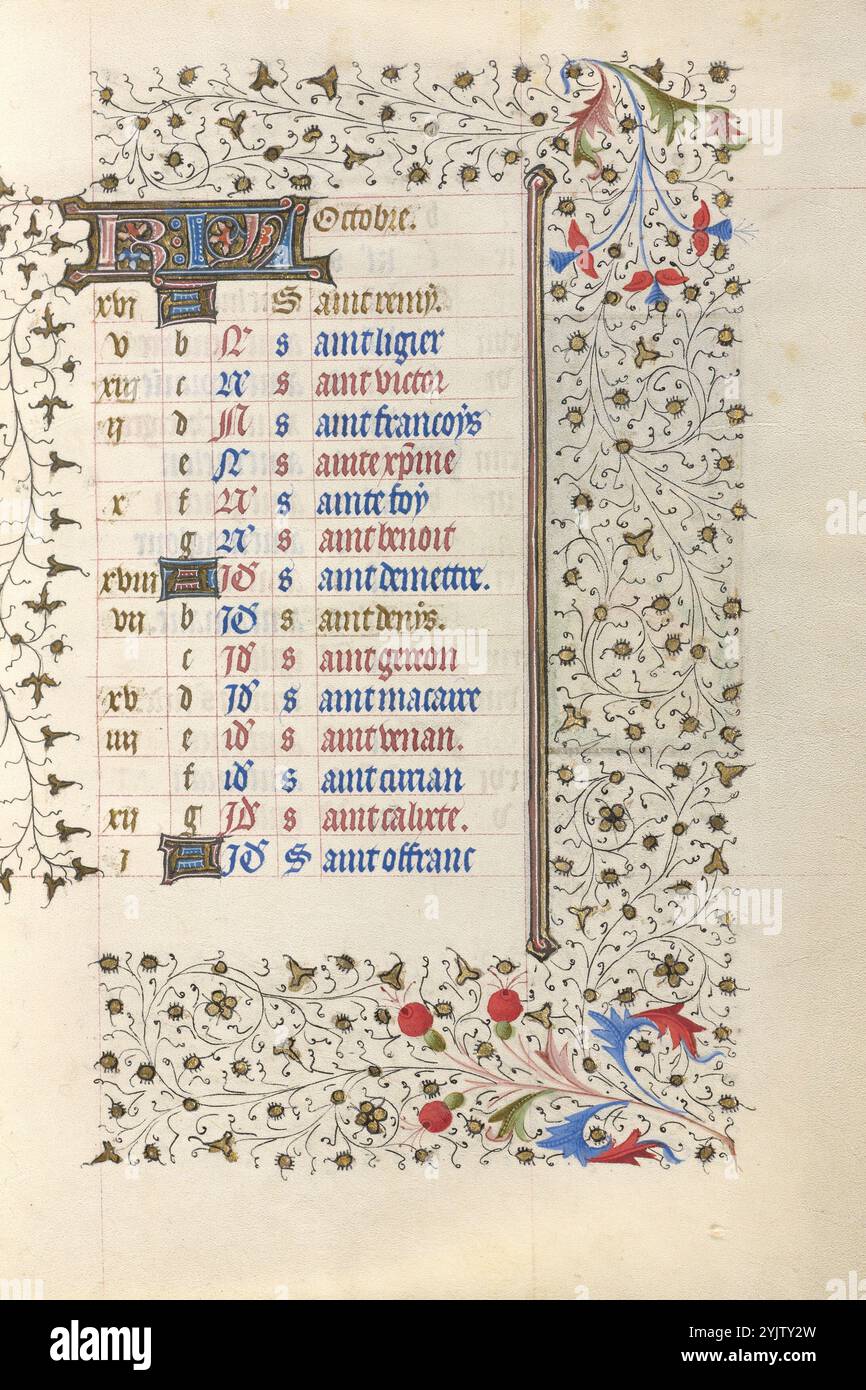 KL Octobre.
xvi A S aint remy.
v b N s aint ligier
xiii c N s aint victor
ii d N s aint francoys
e N s ainte xpine
x f N s ainte foy
g N s aint benoit
xviii A Id s aint demettre.
vii b Id s aint denys.
c Id s aint gereon
xv d Id s aint macaire
iiii e id s aint venan.
f id s aint
xii g Id s aint calixte.
i A Id S aint offranc
alamy
Image ID: 2YJTY2W
www.alamy.com